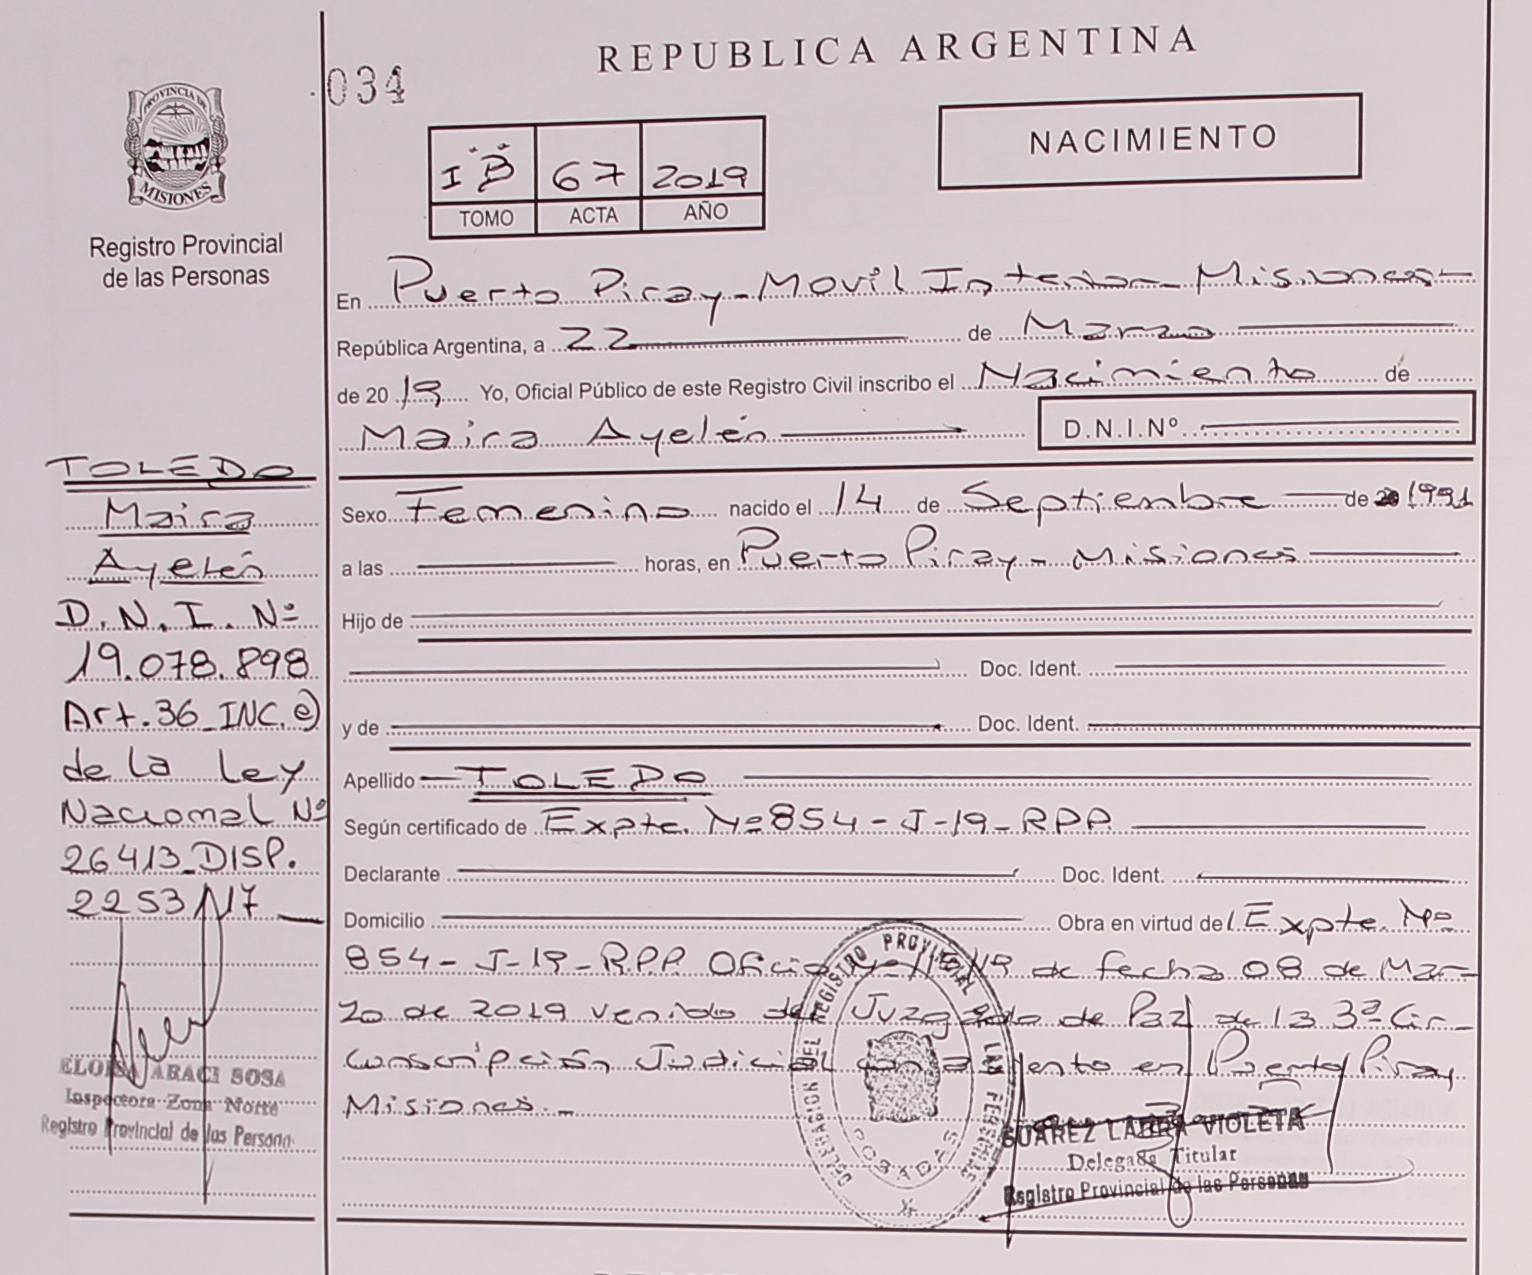 REPUBLICA ARGENTINA
034
PROVINCIA DE
MISIONES
Registro Provincial
de las Personas
I B 67 2019
TOMO ACTA AÑO
NACIMIENTO
En Puerto Piray - Movil Interior - Misiones -
República Argentina, a 22 de Marzo
de 2019 Yo, Oficial Público de este Registro Civil inscribo el Nacimiento de
Maira Ayelén D.N.I.Nº
Sexo Femenino nacido el 14 de Septiembre de 1991
a las horas, en Puerto Piray - Misiones
Hijo de
Doc. Ident.
y de Doc. Ident.
Apellido TOLEDO
Según certificado de Expte. Nº 854 - J - 19 - RPP.
Declarante Doc. Ident.
Domicilio Obra en virtud del Expte. Nº
854 - J - 19 - R.P.P. Oficio de fecha 08 de Mar-
zo de 2019 venido del Juzgado de Paz de la 3ª Cir-
cunscripción Judicial con asiento en Puerto Piray
Misiones. -
TOLEDO
Maira
Ayelén
D.N.I. Nº
19.078.898
Art. 36 - INC. e)
de la Ley
Nacional Nº
26413 - DISP.
2253/17
ELOISA ARACI SOSA
Inspectora Zona Norte
Registro Provincial de las Personas
DELEGACION DEL REGISTRO PROVINCIAL DE LAS PERSONAS
POSADAS
SUAREZ LAURA VIOLETA
Delegada Titular
Registro Provincial de las Personas